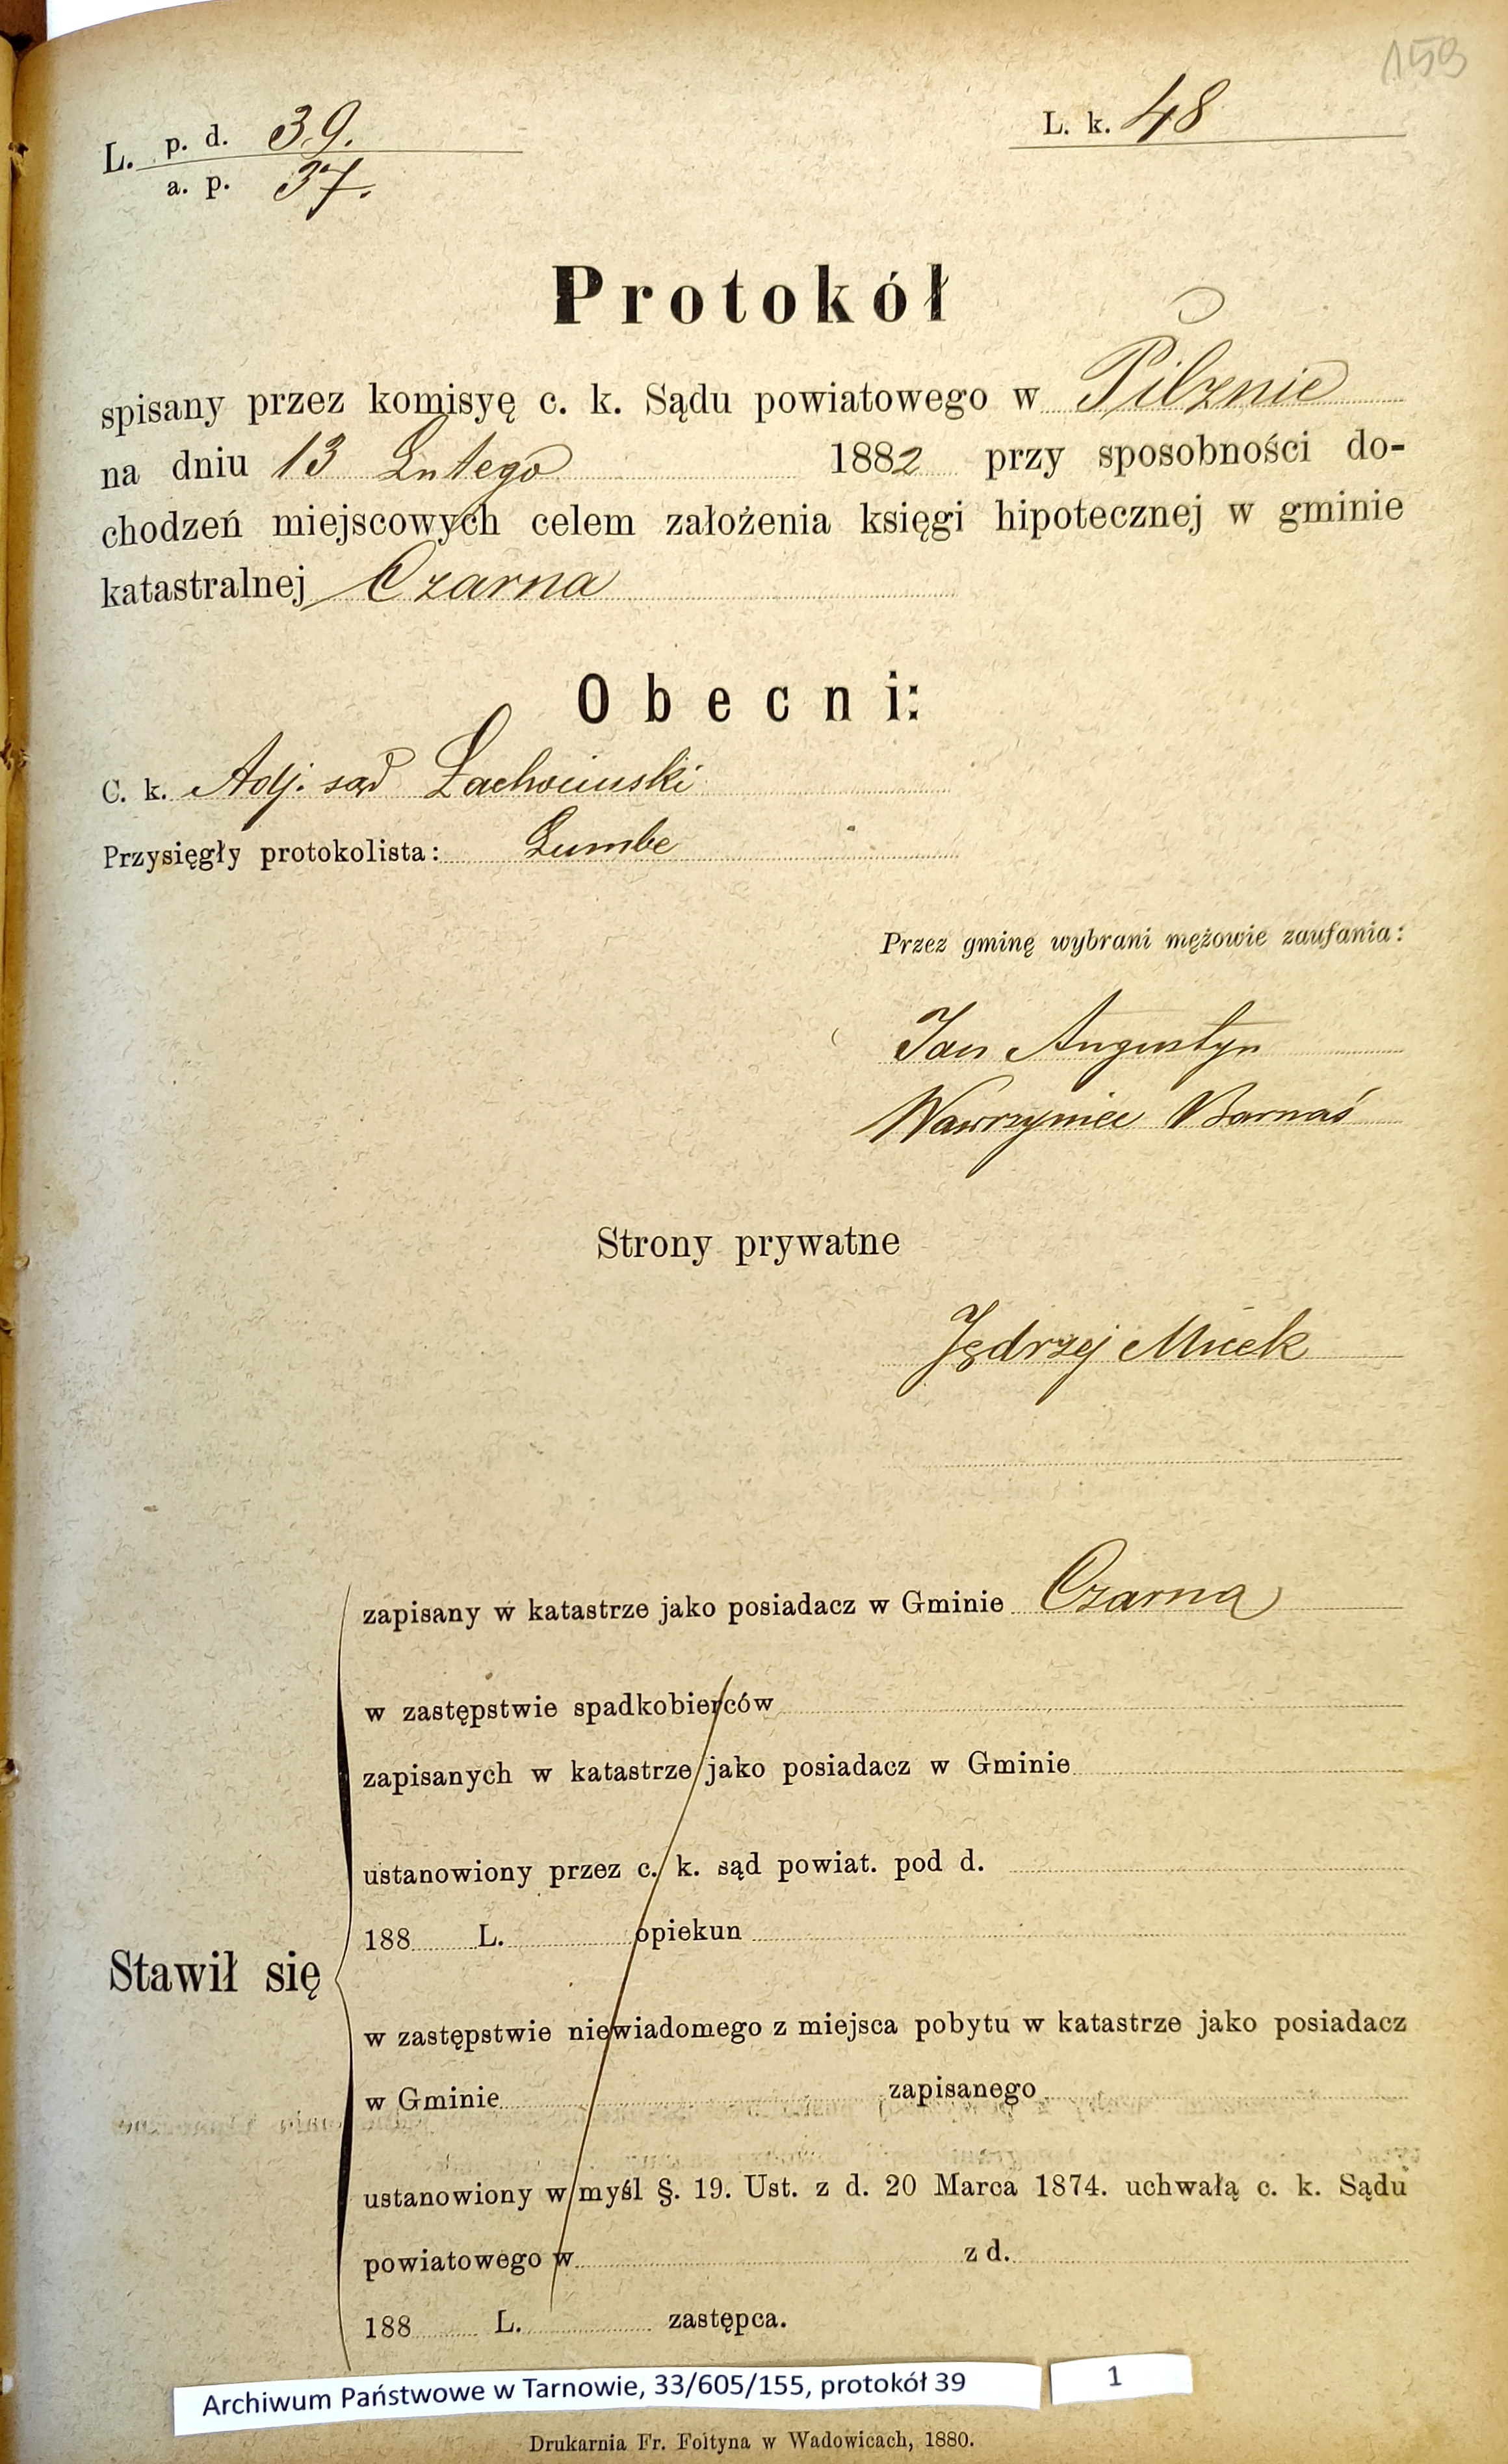 159
L. p. d. 39.
a. p. 37.
L. k. 48
Protokół
spisany przez komisyę c. k. Sądu powiatowego w Pilznie
na dniu 13 Lutego 1882 przy sposobności do-
chodzeń miejscowych celem założenia księgi hipotecznej w gminie
katastralnej Czarna
Obecni:
C. k. Adj. sąd
Przysięgły protokolista: Lumbe
Przez gminę wybrani mężowie zaufania:
Jan Augustyn
Wawrzyniec Barnaś
Strony prywatne
Jędrzej Micek
zapisany w katastrze jako posiadacz w Gminie Czarna
w zastępstwie spadkobierców
zapisanych w katastrze jako posiadacz w Gminie
ustanowiony przez c. k. sąd powiat. pod d.
188 L. opiekun
Stawił się
w zastępstwie niewiadomego z miejsca pobytu w katastrze jako posiadacz
w Gminie zapisanego
ustanowiony w myśl §. 19. Ust. z d. 20 Marca 1874. uchwałą c. k. Sądu
powiatowego w z d.
188 L. zastępca.
Archiwum Państwowe w Tarnowie, 33/605/155, protokół 39
1
Drukarnia Fr. Foltyna w Wadowicach, 1880.